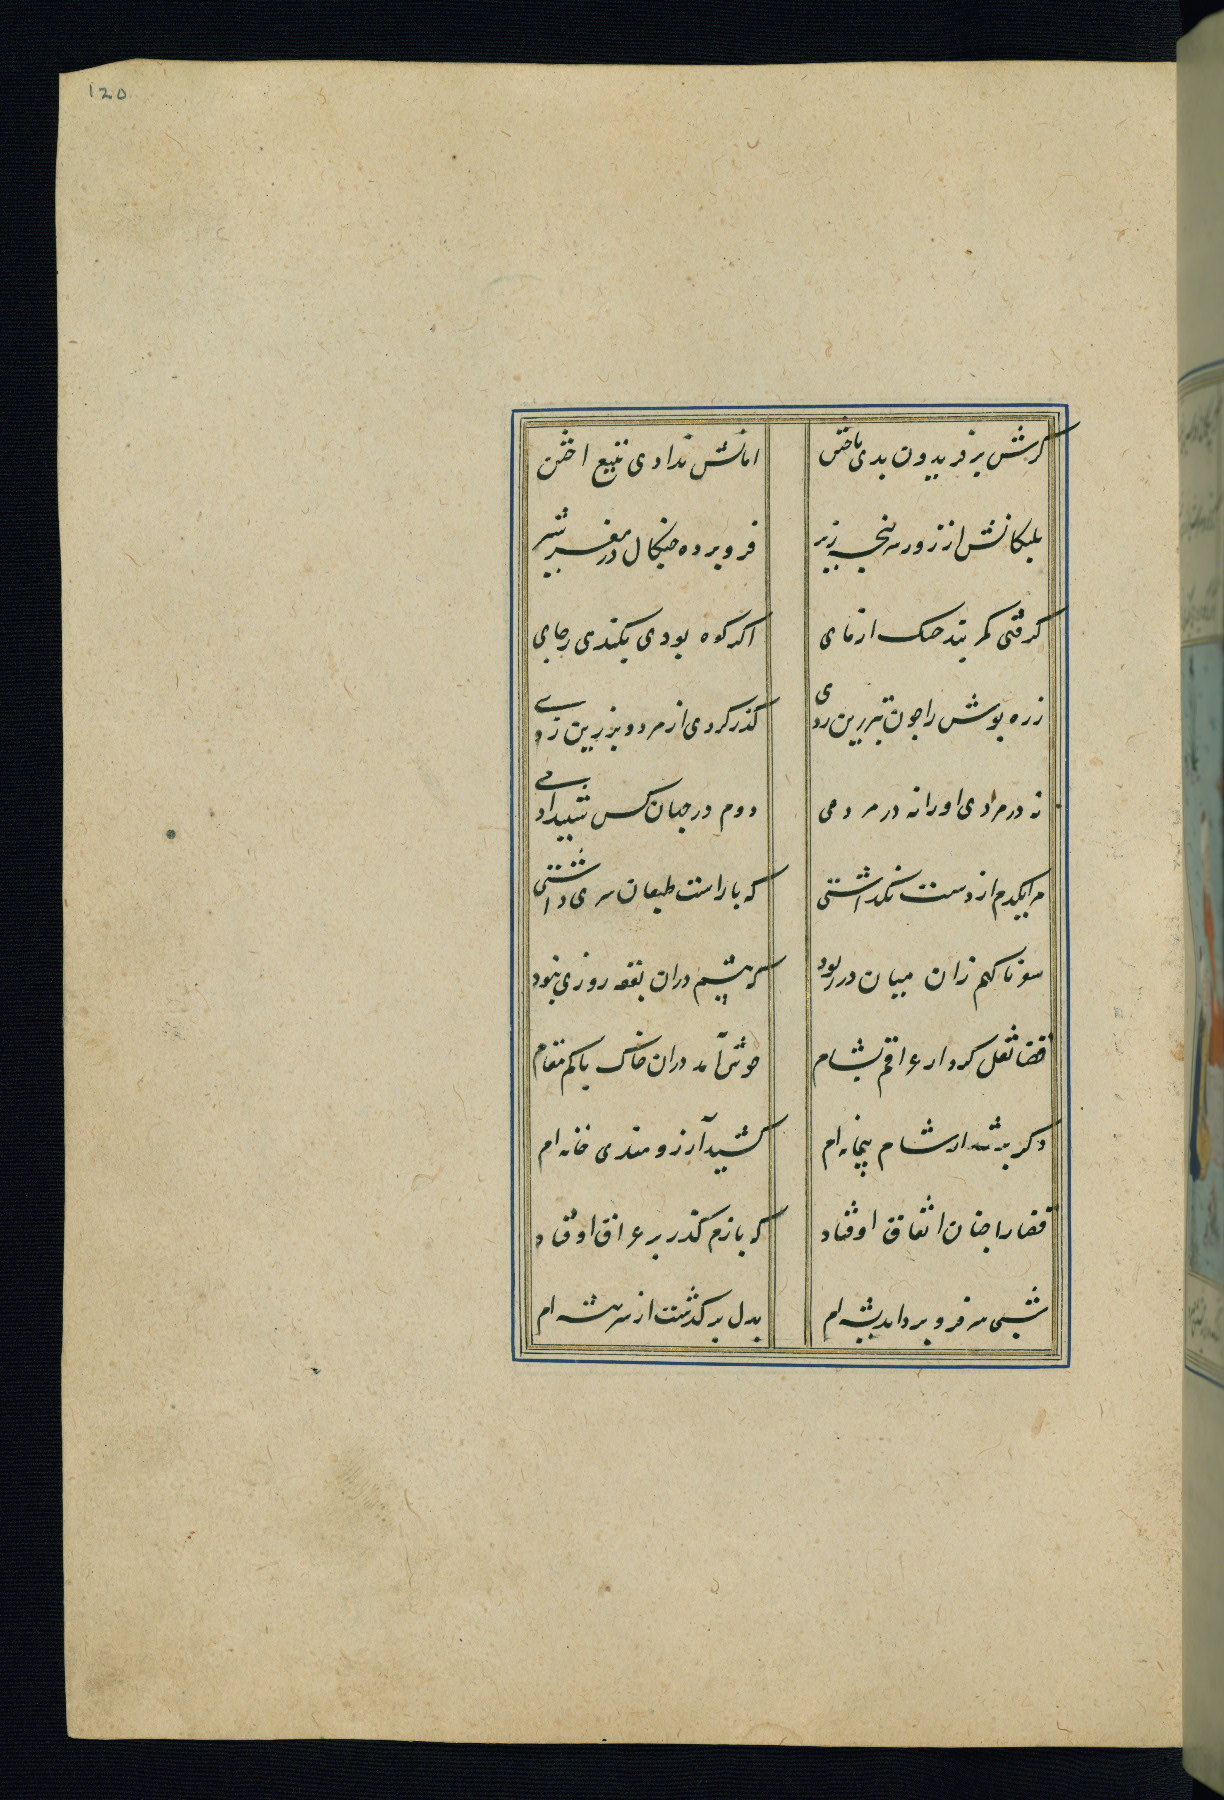 120
کرش بر فریدون بدی تاختن امانش ندادی بتیع اختن
پلنکانش از زور سرپنجه زیر فرو برده چنکال در مغز شیر
کرفتی کمربند جنک ازمای اکر کوه بودی بکندی زجای
زره پوش را چون تبرزین زدی کذر کردی از مرد و بر زین زدی
نه در مردی او را نه در مردمی دوم در جهان کس شنید ادمی
مرا یکدم از دست نکذاشتی که با راست طبعان سری داشتی
سفر ناکهم زان میان در ربود که بیشم دران بقعه روزی نبود
قضا نقل کرد از عراقم بشام خوش آمد دران خاک پاکم مقام
دکر پر شد از شام پیمانه ام کشید آرزومندی خانه ام
قضا را چنان اتفاق اوفتاد که بازم کذر بر عراق اوفتاد
شبی سر فرو برد اندیشه ام بدل بر کذشت از سر پیشه ام